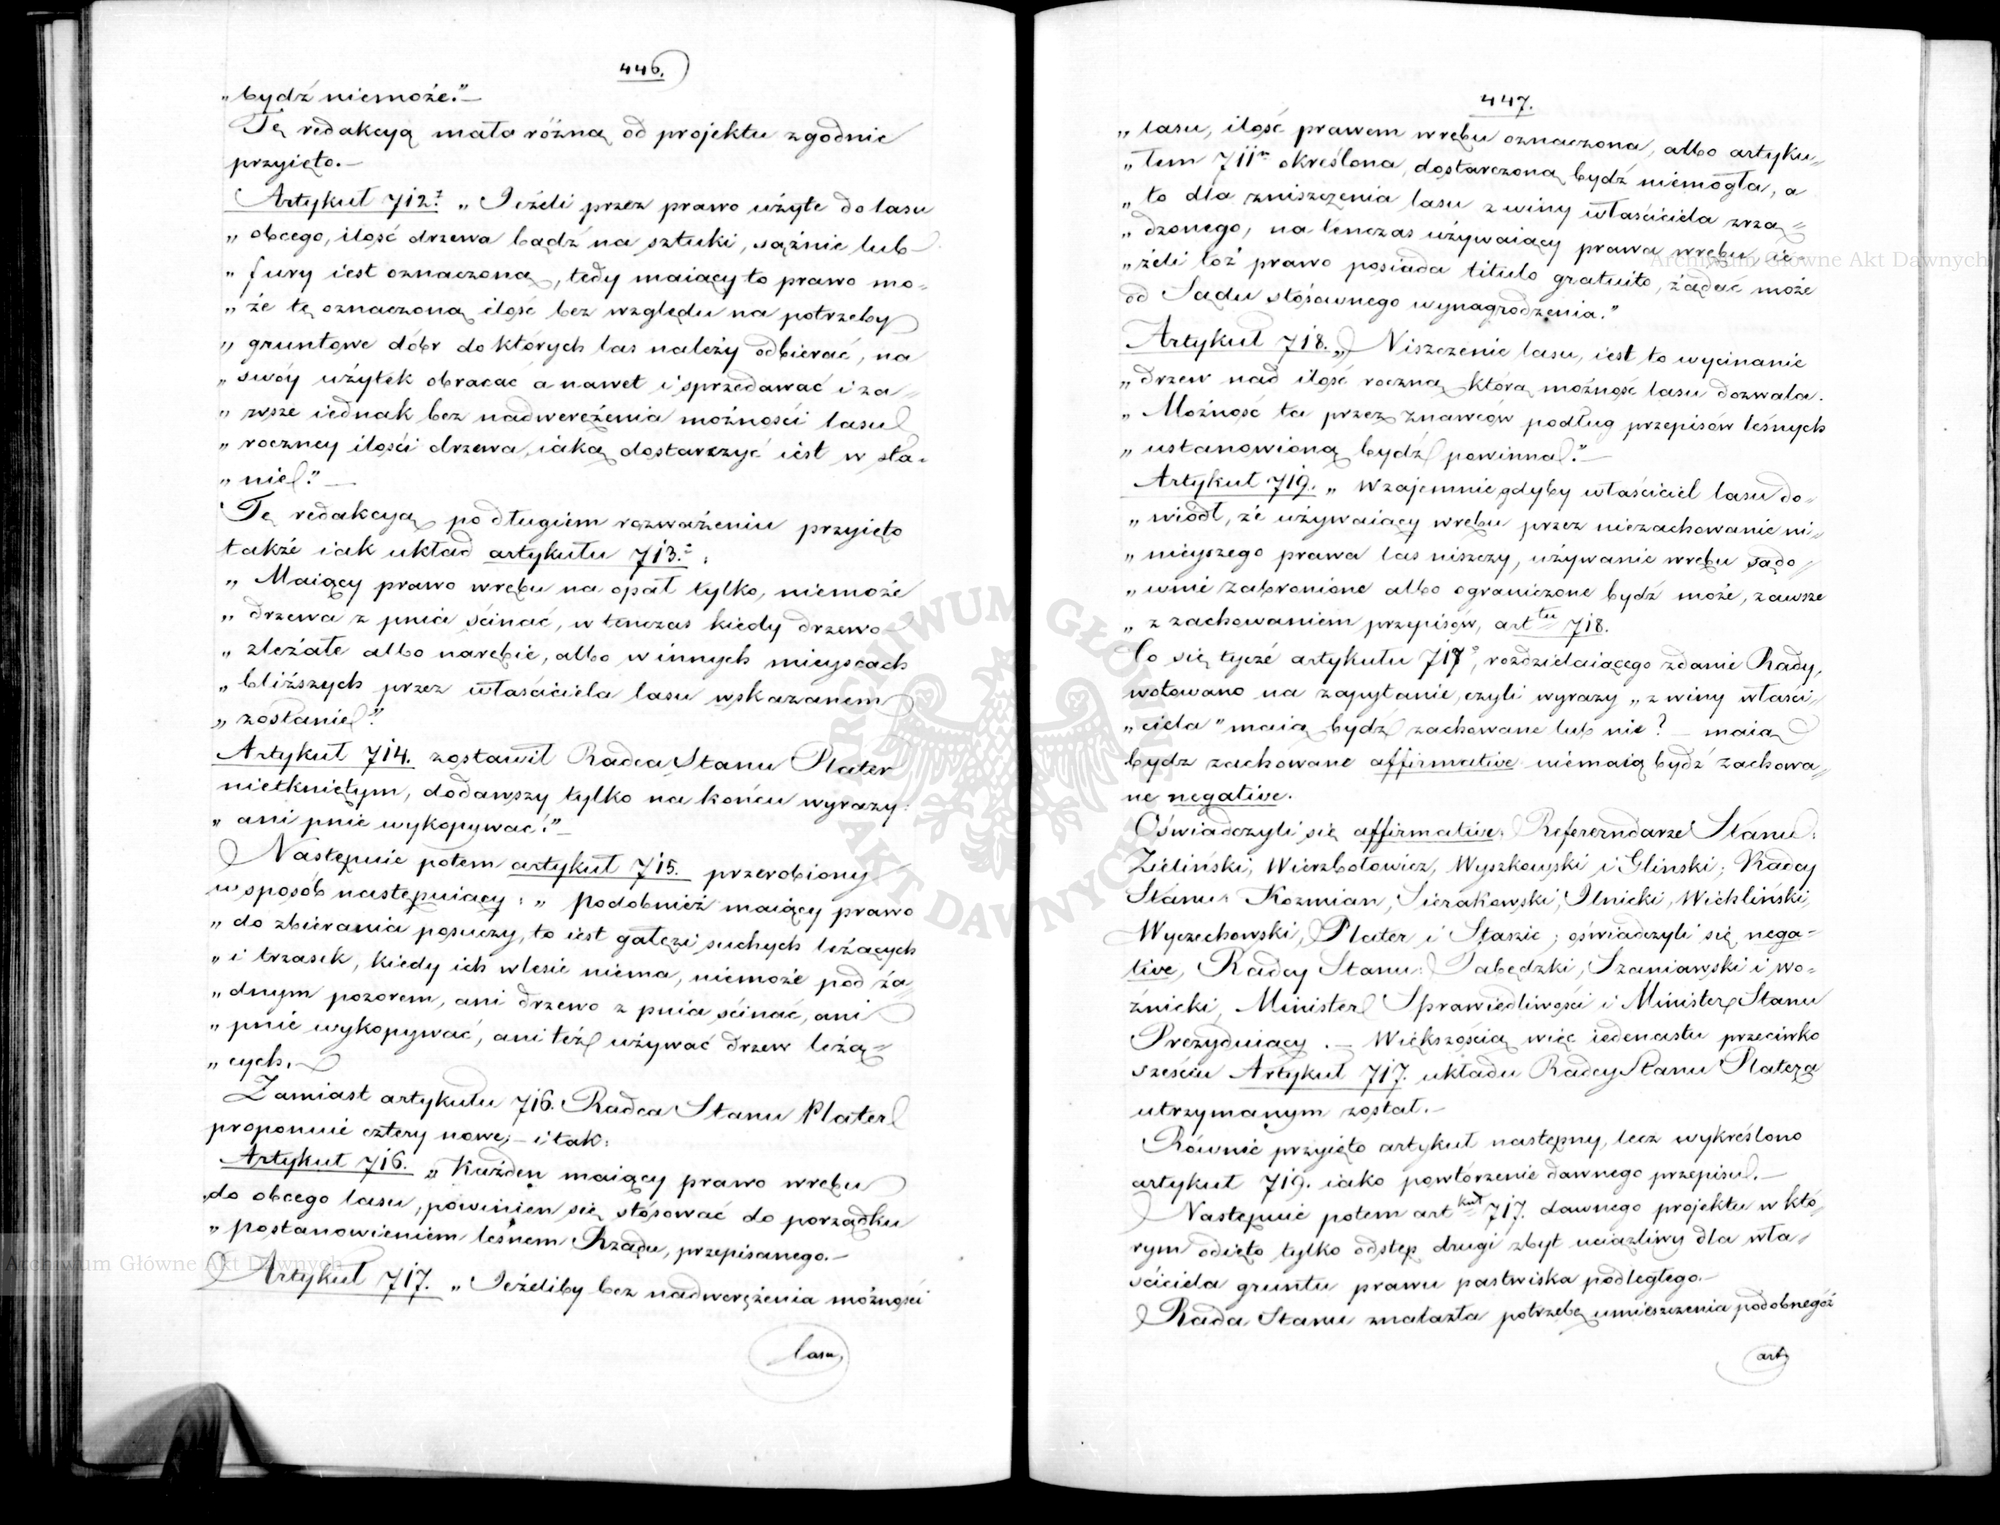 446.
„bydź niemoże."—
Tę redakcyą mało różną od projektu zgodnie
przyięto.—
Artykuł 712.ᵗ „Jeżeli przez prawo użyte do lasu
„obcego, ilość drzewa bądź na sztuki, sążnie lub
„fury iest oznaczona, tedy maiący to prawo mo-
„że tę oznaczoną ilość bez względu na potrzeby
„gruntowe dóbr do których las należy odbierać, na
„swóy użytek obracać a nawet i sprzedawać i za-
„wsze iednak bez nadwerężenia możności lasu
„roczney ilości drzewa, iaką dostarczyć iest w sta-
„nie."—
Tę redakcyą po długiem rozważeniu przyięto
także iak układ artykułu 713.ᵒ:
„Maiący prawo wrębu na opał tylko, niemoże
„drzewa z pnia ścinać, w tenczas kiedy drzewo
„zleżałe albo narębie, albo w innych mieyscach
„bliższych przez właściciela lasu wskazanem
„zostanie."
Artykuł 714. zostawił Radca Stanu Plater
nietkniętym, dodawszy tylko na końcu wyrazy:
„ani pnie wykopywać."—
Następuie potem artykuł 715. przerobiony
w sposób następuiący: „podobnież maiący prawo
„do zbierania posuszy, to iest gałęzi suchych leżących
„i trzasek, kiedy ich w lesie niema, niemoże pod ża-
„dnym pozorem, ani drzewo z pnia ścinać, ani
„pnie wykopywać, ani też używać drzew leżą-
„cych.—
Zamiast artykułu 716. Radca Stanu Plater
proponuie cztery nowe;— i tak:
Artykuł 716. „Każden maiący prawo wrębu
„do obcego lasu, powinien się stósować do porządku
„postanowieniem leśnem Rządu, przepisanego.—
Artykuł 717. „Jeżeliby bez nadwerężenia możności
lasu,
447.
„lasu, ilość prawem wrębu oznaczona, albo artyku-
„łem 711ᵐ określona, dostarczoną bydź niemogła, a
„to dla zniszczenia lasu z winy właściciela zrzą-
„dzonego, na tenczas używaiący prawa wrębu ie-
„żeli toż prawo posiada titulo gratuito, żądać może
od Sądu stósownego wynagrodzenia."
Artykuł 718. „Niszczenie lasu, iest to wycinanie
„drzew nad ilość roczną którą możność lasu dozwala.
„Możność ta przez znawców podług przepisów leśnych
„ustanowioną bydź powinna."—
Artykuł 719. „Wzajemnie gdyby właściciel lasu do-
„wiódł, że używaiący wrębu przez niezachowanie ni-
„nieyszego prawa las niszczy, używanie wrębu sądo-
„wnie zabronione albo ograniczone bydź może, zawsze
„z zachowaniem przepisów, artᵗᵘ 718.
Co się tycze artykułu 717ᵒ, rozdzielaiącego zdanie Rady,
wotowano na zapytanie, czyli wyrazy „z winy właści-
„ciela" maią bydź zachowane lub nie? — maią
bydz zachowane affirmative niemaią bydź zachowa-
ne negative.
Oświadczyli się affirmative: Refererndarze Stanu:
Zieliński, Wierzbołowicz, Wyszkowski i Gliński; Radcy
Stanu: Koźmian, Sierakowski, Ilnicki, Wichliński,
Wyczechowski, Plater i Staszic; oświadczyli się nega-
tive, Radcy Stanu: Łabędzki, Szaniawski i Wo-
źnicki, Minister Sprawiedliwości i Minister Stanu
Prezyduiący.— Większością więc iedenastu przeciwko
sześciu Artykuł 717. układu Radcy Stanu Platera
utrzymanym został.—
Równie przyięto artykuł następny, lecz wykreślono
artykuł 719. iako powtórzenie dawnego przepisu.—
Następuie potem artᵏᵘᵗ 717. dawnego projektu w któ-
rym odięto tylko odstęp drugi zbyt uciazliwy dla wła-
ściciela gruntu prawu pastwiska podległego.—
Rada Stanu znalazła potrzebę umieszczenia podobnegóż
art
Archiwum Główne Akt Dawnych
Archiwum Główne Akt Dawnych
ARCHIWUM GŁÓWNE AKT DAWNYCH